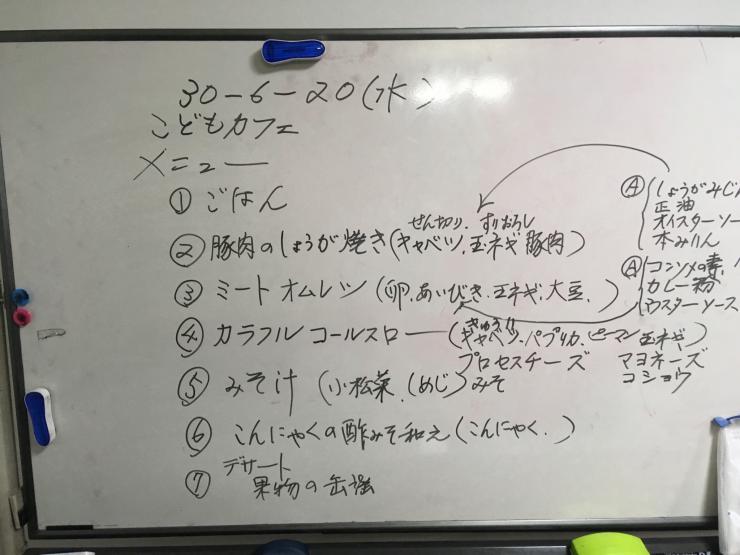 30-6-20(水)
こどもカフェ
メニュー
① ごはん
せん切り. すりおろし
② 豚肉のしょうが焼き(キャベツ. 玉ネギ 豚肉)
③ ミートオムレツ (卵. あいびき. 玉ネギ. 大豆.)
きゅうり
④ カラフルコールスロー (キャベツ. パプリカ. ピーマン 玉ネギ)
プロセスチーズ マヨネーズ
コショウ
⑤ みそ汁 (小松菜. (めじ) みそ
⑥ こんにゃくの酢みそ和え (こんにゃく. )
デザート
⑦ 果物の缶詰
Ⓐ しょうがみじん
正油
オイスターソー
本みりん
Ⓐ コンソメの素
カレー粉
ウスターソース